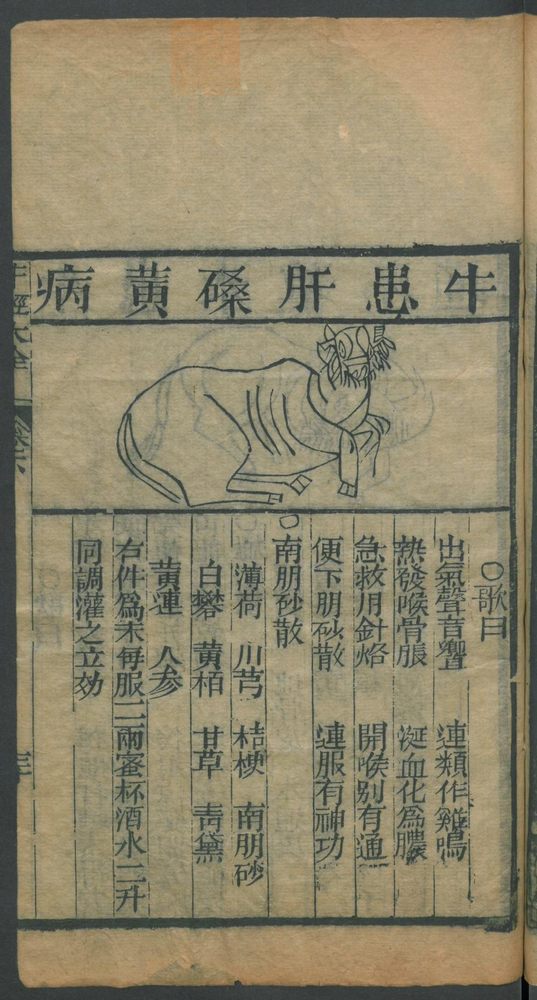 牛患肝磉黃病
○歌曰
出氣聲音響 連類作雞鳴
熱發喉骨脹 涎血化爲膿
急救用針烙 開喉别有通
便下朋砂散 連服有神功
○南朋砂散
薄荷 川芎 桔梗 南朋砂
白礬 黄栢 甘草 青黛
黄連 人参
右件爲末每服二兩蜜杯酒水二升
同調灌之立効
牛經大全 卷下